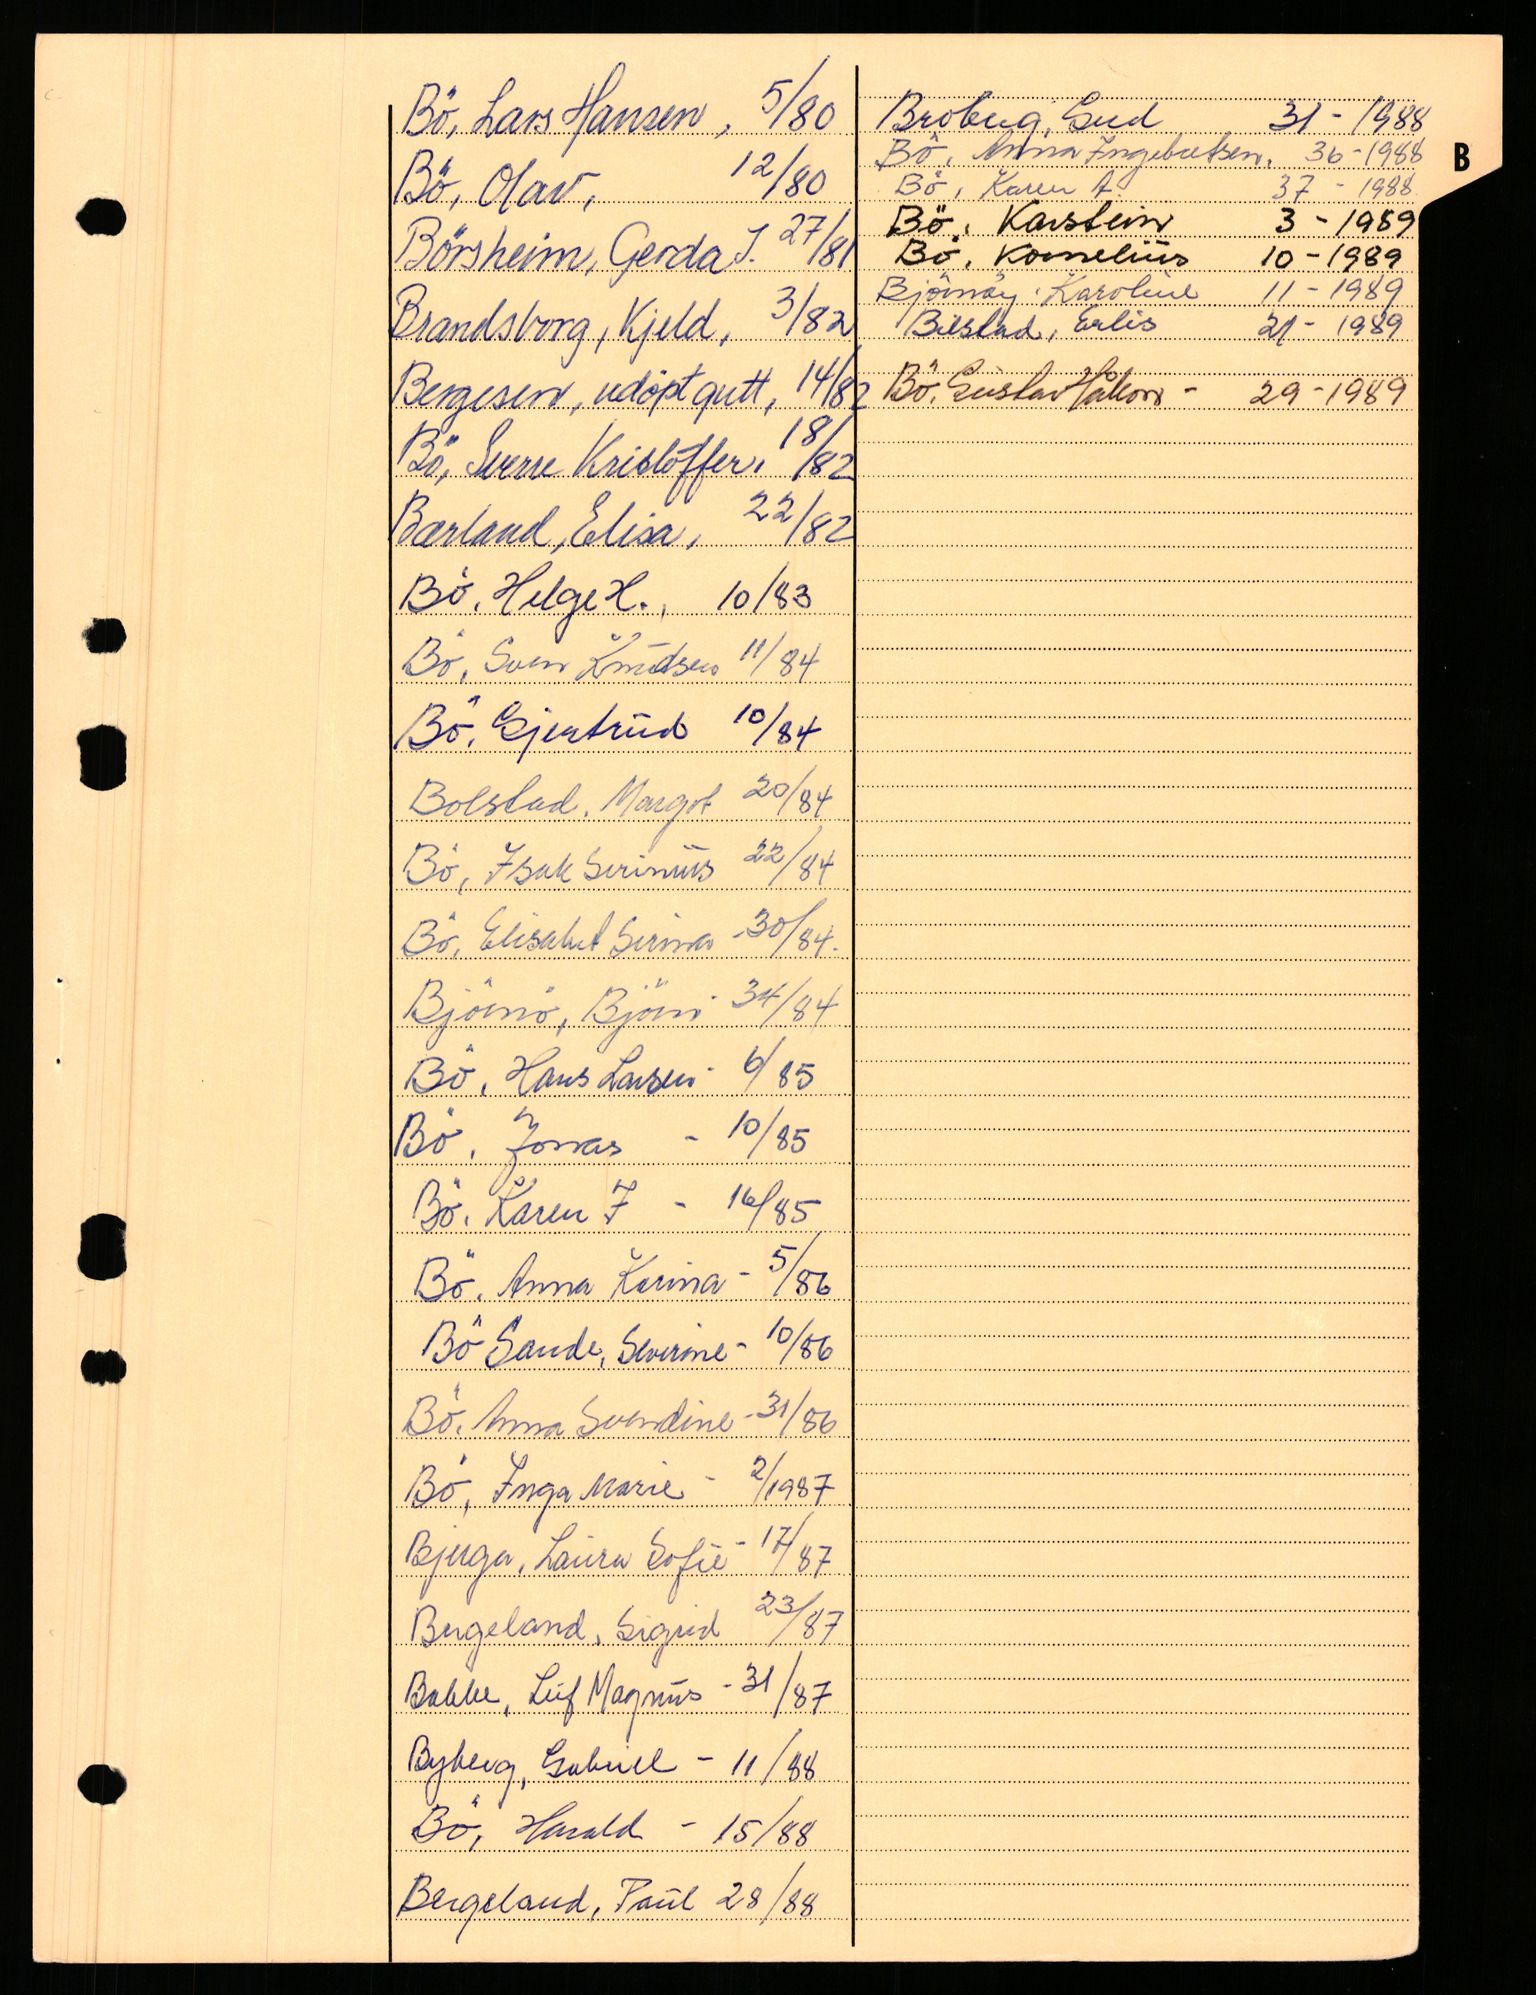 Bö, Lars Hansen, 5/80
Bö, Olav, 12/80
Börsheim, Gerda J. 27/81
Brandsborg, Kjeld, 3/82
Bergesen, udöpt gutt, 14/82
Bö, Sverre Kristoffer, 18/82
Bærland, Elisa, 22/82
Bö, Helge H., 10/83
Bö, Sven Knudsen 11/84
Bö, Gjertrud 10/84
Bolstad, Margot 20/84
Bö, Isak Serinius 22/84
Bö, Elisabet Serina - 30/84.
Björnö, Björn 34/84
Bö, Hans Larsen - 6/85
Bö, Jonas - 10/85
Bö, Karen F - 16/85
Bö, Anna Karina - 5/86
Bö Sande, Severine - 10/86
Bö, Anna Svendine - 31/86
Bö, Inga Marie - 2/1987
Bjerga, Laura Sofie - 17/87
Bergeland, Sigrid 23/87
Bakke, Leif Magnus - 31/87
Byberg, Gabriel - 11/88
Bö, Harald - 15/88
Bergeland, Paul 28/88
B
Broberg, 31 - 1988
Bö, Anna Ingebretsen, 36 - 1988
Bö, Karen A. 37 - 1988
Bö, Karstein 3 - 1989
Bö, Kornelius 10 - 1989
Björnöy, Karoline 11 - 1989
Bilstad, Erlis 21 - 1989
Bö, Gustav Håkon - 29 - 1989